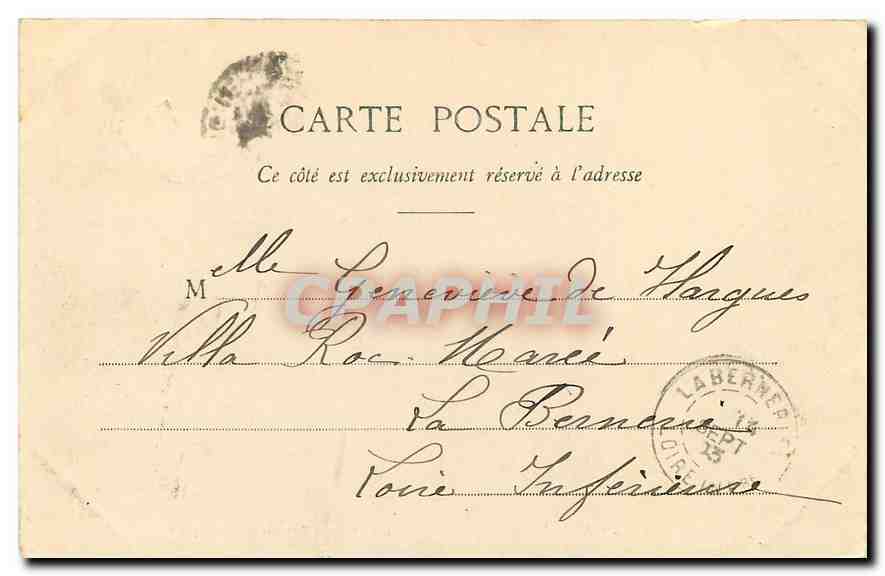 CARTE POSTALE
Ce côté est exclusivement réservé à l'adresse
Melle Geneviève de Hargues
Villa Roc-Marée
La Bernerie
Loire Inférieure
LABERNER
14
SEPT
LOIRE
CPAPHIL